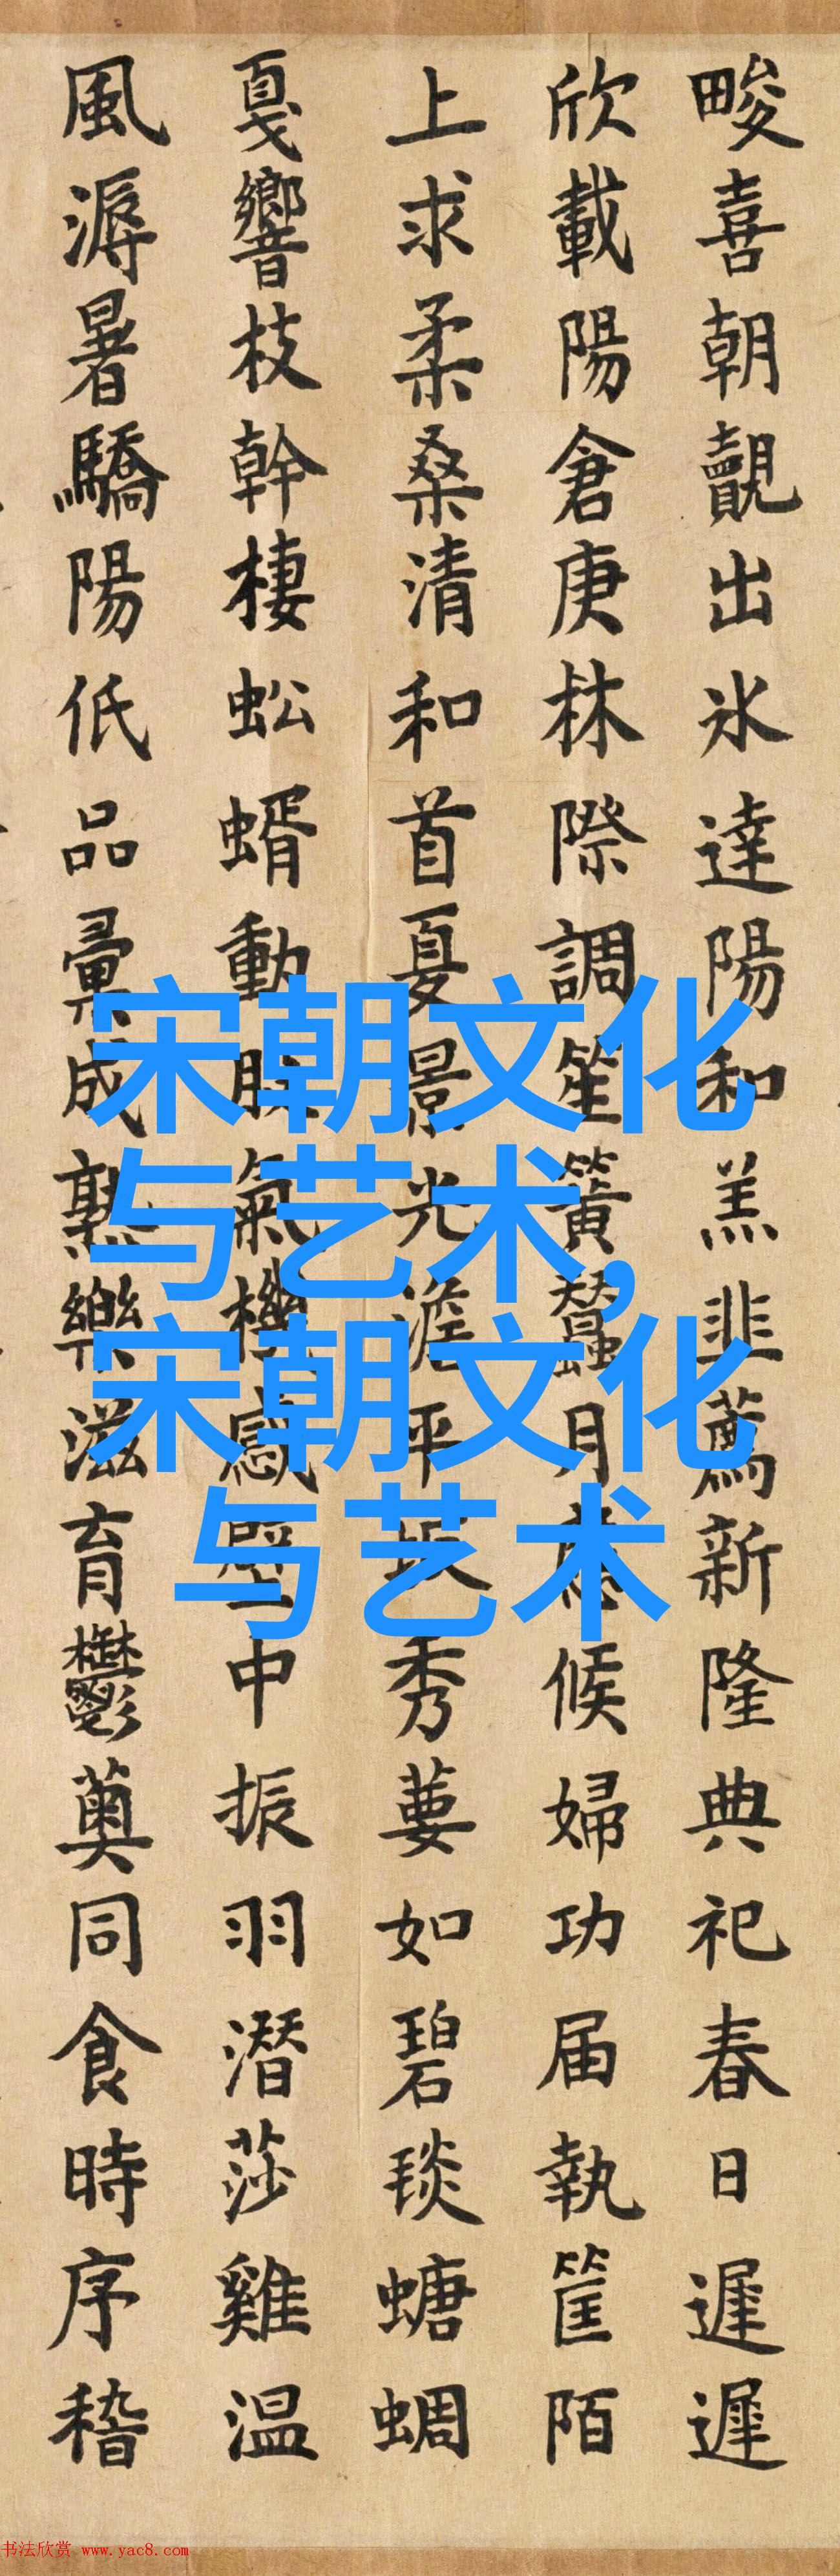 畯喜朝覿出冰達陽和羔韭薦新隆典祀春日遲遲
欣載陽倉庚林際調笙簧蠶月應候婦功届執筐陌
上求柔桑清和首夏景光澹平坂秀葽如碧琰螗蜩
戛響枝幹棲蚣蝑動股氣機感壁中振羽潛莎雞温
風溽暑驕陽低品彙成熟樂滋育鬱薁同食時序稽
宋朝文化
与艺术,
宋朝文化
与艺术
书法欣赏 www.yac8.com